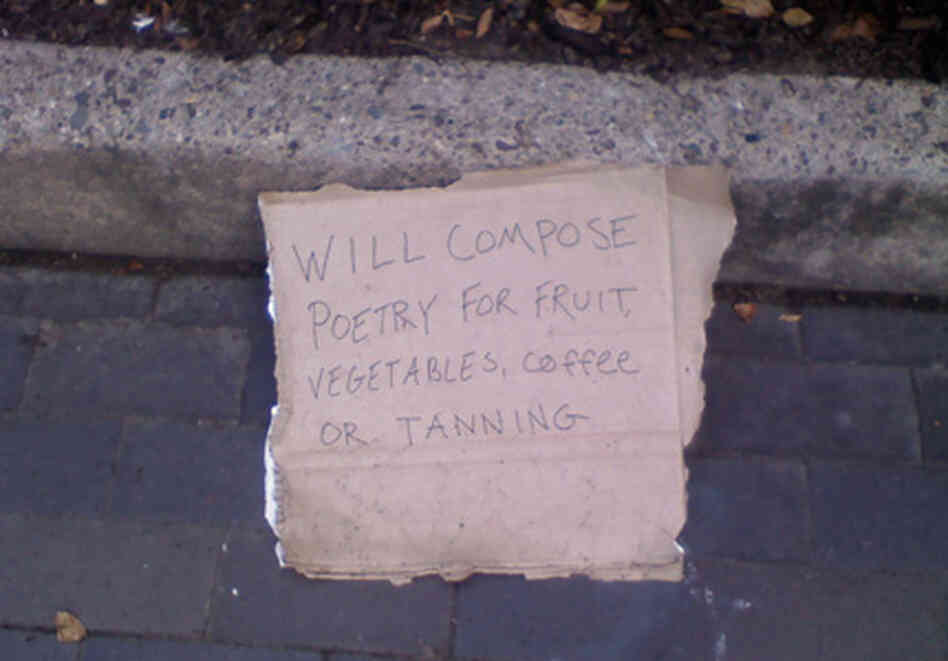 WILL COMPOSE
POETRY FOR FRUIT,
VEGETABLES, coffee
OR TANNING